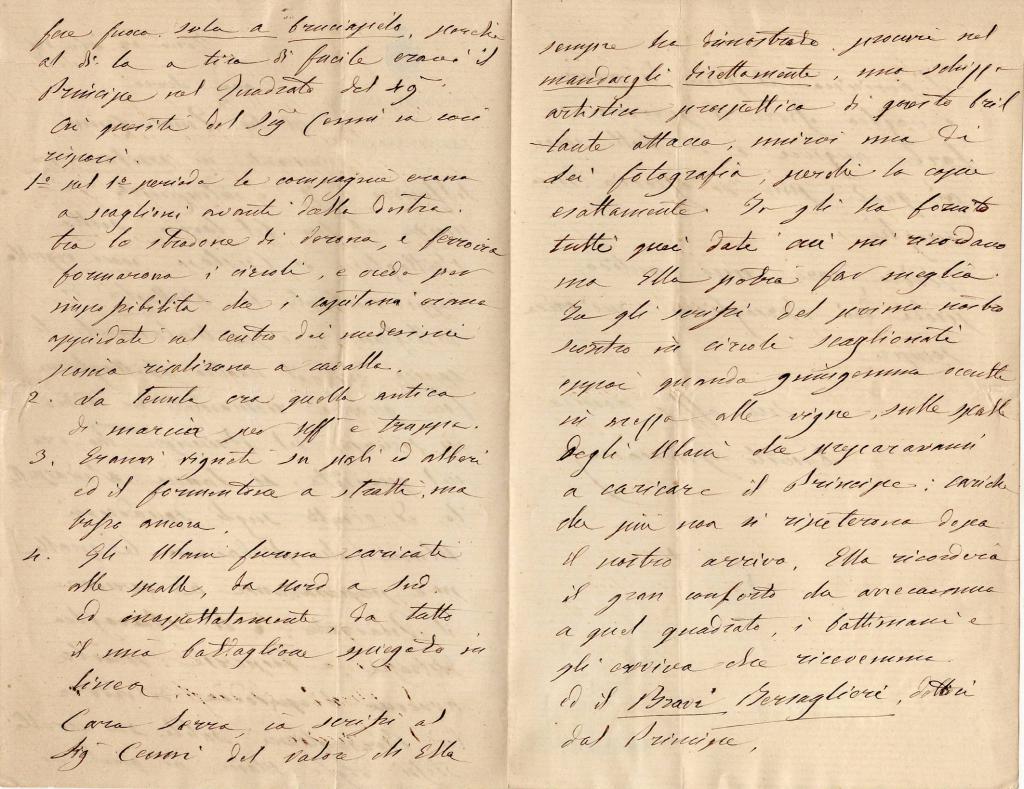 fare fuoco solo a bruciapelo, perchè
al di là a tiro di fucile eravi il
Principe nel Quadrato del 49.
Ai quesiti del Sig Cenni io così
risposi.
1º nel 1º periodo le compagnie erano
a scaglioni avanti dalla destra.
tra lo stradone di Verona, e ferrovia
formarono i circoli, e credo per
impossibilità che i capitani erano
appiedati nel centro dei medesimi
poi risalirono a cavallo.
2. La tenuta era quella antica
di marcia per uff e truppa.
3. Eranvi vigneti su pali ed alberi
ed il formentone a tratti, ma
basso ancora.
4. Gli Ulani furono caricati
alle spalle, da Nord a Sud.
ed inaspettatamente, da tutto
il mio battaglione spiegato in
linea
Caro Serra, io scrissi al
Sig Cenni del valore di Ella
sempre ha dimostrato. procuri nel
mandargli direttamente, uno schizzo
artistico prospettico di questo bril
lante attacco, unirvi una di
Lei fotografia, perchè la copii
esattamente. Io gli ho fornito
tutti quei dati che mi ricordavo
ma Ella potrà far meglio.
Io gli scrissi del primo nostro
scontro in circoli scaglionati
eppoi quando giungemmo
in mezzo alle vigne, sulle spalle
degli Ulani che preparavansi
a caricare il Principe; cariche
che più non si ripeterono dopo
il nostro arrivo. Ella ricorderà
il gran conforto che arrecammo
a quel quadrato, i battimani e
gli evviva che ricevemmo
ed il Bravi Bersaglieri, dettoci
dal Principe.